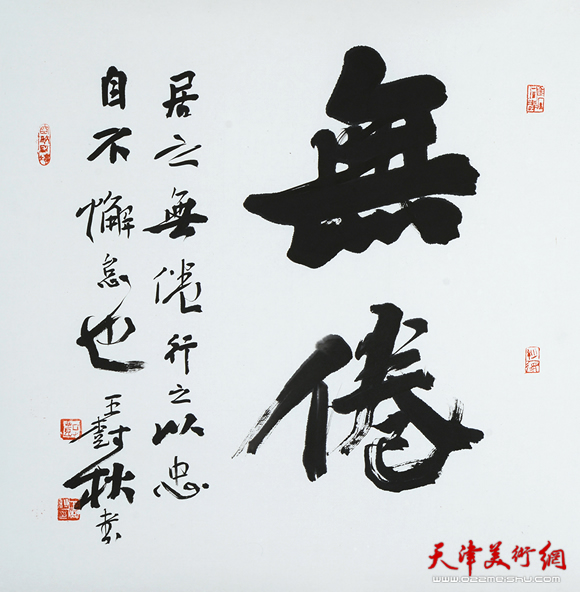 無倦
居之無倦行之以忠
自不懈怠也
王樹秋書
天津美術網
www.022meishu.com